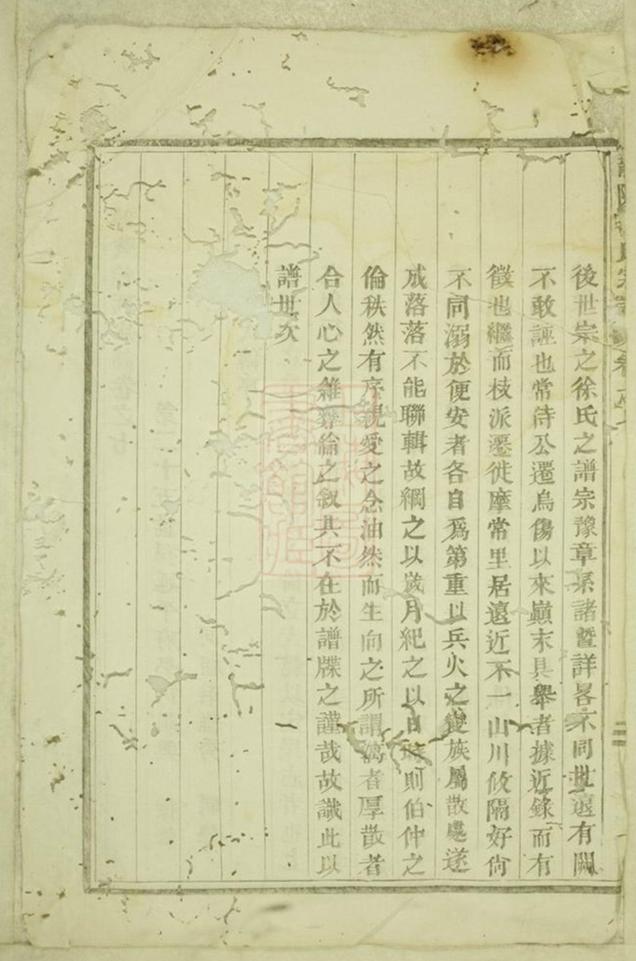 後世宗之徐氏之譜宗豫章某諸暨詳畧不同世遠有闕
不敢誣也常侍公遷烏傷以來巔末具舉者據近錄而有
徵也繼而枝派遷徙靡常里居遠近不一山川攸隔好尙
不同溺於便安者各自爲第重以兵火之變族屬散處遂
成落落不能聯輯故綱之以歲月紀之以日時則伯仲之
倫秩然有序親愛之念油然而生向之所謂薄者厚散者
合人心之雜彝倫之敘其不在於譜牒之謹哉故識此以
譜世次
氏宗譜
二